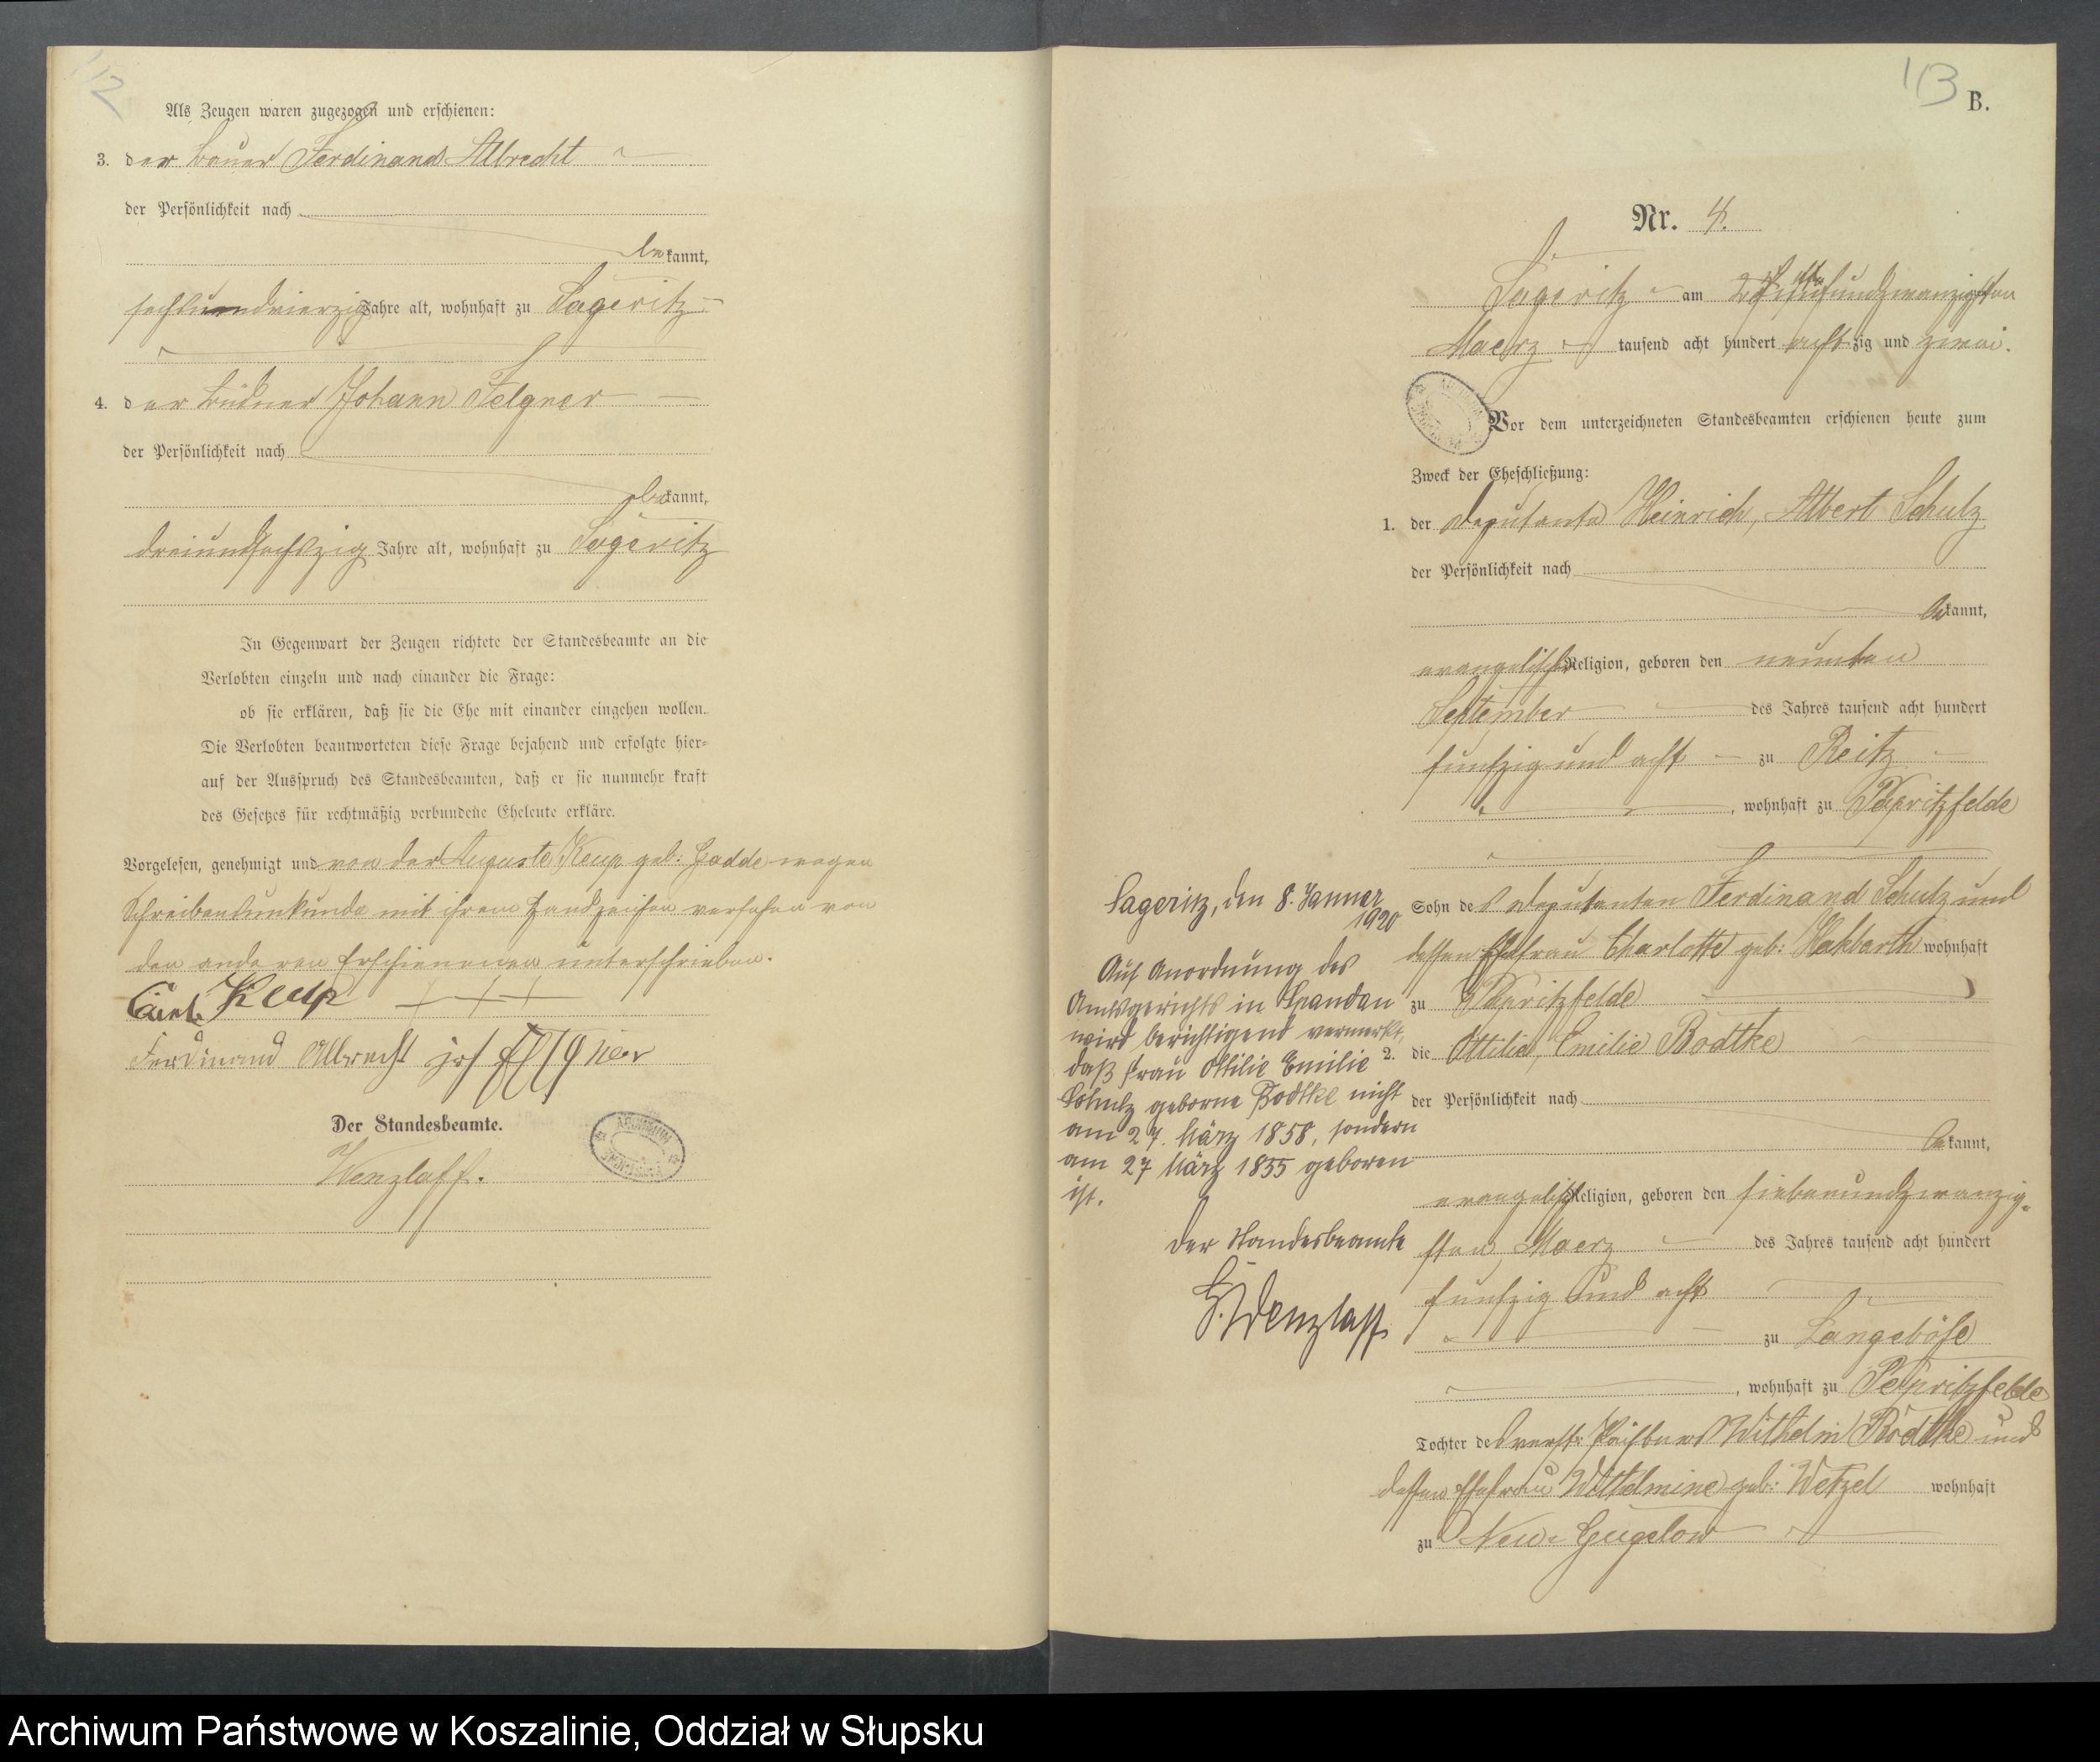 112
Als Zeugen waren zugezogen und erschienen:
3. der Bauer Ferdinand Albrecht
der Persönlichkeit nach
bekannt,
sechsundvierzig Jahre alt, wohnhaft zu Sageritz
4. der Büdner Johann Felgner
der Persönlichkeit nach
bekannt,
dreiundsechszig Jahre alt, wohnhaft zu Sageritz
In Gegenwart der Zeugen richtete der Standesbeamte an die
Verlobten einzeln und nach einander die Frage:
ob sie erklären, daß sie die Ehe mit einander eingehen wollen.
Die Verlobten beantworteten diese Frage bejahend und erfolgte hier-
auf der Ausspruch des Standesbeamten, daß er sie nunmehr kraft
des Gesetzes für rechtmäßig verbundene Eheleute erkläre.
Vorgelesen, genehmigt und von der Auguste Keup geb: Gadde wegen
Schreibensunkunde mit ihrem Handzeichen versehen von
den anderen Erschienenen unterschrieben.
Carl Keup +++
Ferdinand Albrecht joh Felgner
Der Standesbeamte.
Wenzlaff.
113
B.
Nr. 4.
Sageritz am
Maerz tausend acht hundert achtzig und zwei.
Vor dem unterzeichneten Standesbeamten erschienen heute zum
Zweck der Eheschließung:
1. der Deputante Heinrich, Albert Schulz
der Persönlichkeit nach
bekannt,
evangelischer Religion, geboren den neunten
September des Jahres tausend acht hundert
funfzig und acht zu Reitz
, wohnhaft zu Papritzfelde
Sohn des Deputanten Ferdinand Schulz und
dessen Ehefrau Charlotte geb: Hakbarth wohnhaft
zu Papritzfelde
2. die Ottilie, Emilie Bodtke
der Persönlichkeit nach
bekannt,
evangelischer Religion, geboren den siebenundzwanzig-
sten Maerz des Jahres tausend acht hundert
funfzig und acht
zu Langeböse
, wohnhaft zu Papritzfelde
Tochter des verst: Wilhelm Bodtke und
dessen Ehefrau Wilhelmine geb: Wetzel wohnhaft
zu Neu-Gugelow
Sageritz, den 8. Januar
1920
Auf Anordnung des
Amtsgerichts in Spandau
wird berichtigend vermerkt,
daß Frau Ottilie Emilie
Schulz geborne Bodtke nicht
am 27. März 1858, sondern
am 27 März 1855 geboren
ist.
Der Standesbeamte
Wenzlaff
Archiwum Państwowe w Koszalinie, Oddział w Słupsku